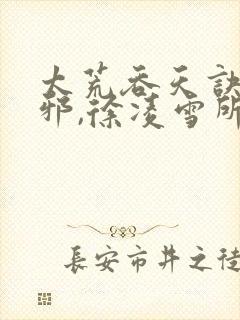 大荒吞天訣
邪,徐淩雪所
長安市井之徒